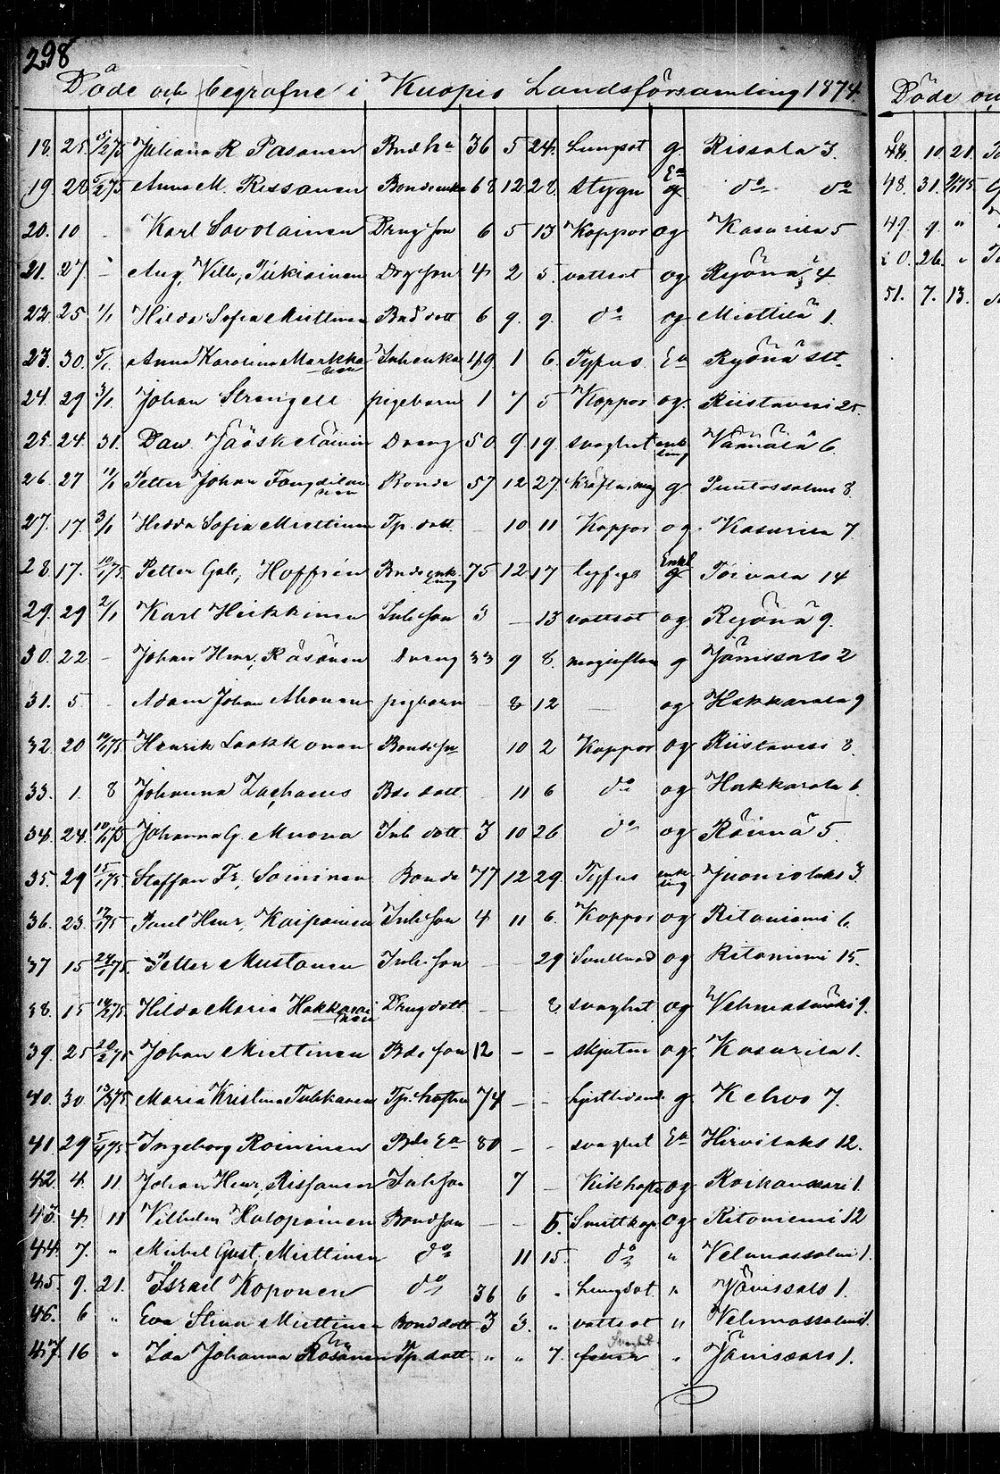 298
Döde och begrafne i Kuopio Landsförsamling 1874
18. 25. 15/2 75 Juliana R Pasanen Bnd ha 36 5 24. Lungsot g Rissala 3.
19 28 75 Anna M. Rissanen Bondeenka 68 12 28 Stygn Ea g do do
20. 10 - Karl Savolainen Dreng son 6 5 13 Koppor og Kasurila 5
21. 27 - Aug. Vilh. Tiikiainen Drgson 4 2 5 vattsot og Ryönä 4
22. 25 1/1 Hilda Sofia Miettinen Bnd dott 6 9. 9. do og Miettilä 1.
23. 30. 5/1 Anna Karolina Markkanen Inh enka 49 1 6. Typus Ea Ryönä
24. 29 3/1 Johan Strengell pigebarn 1 7 5 Koppor og. Riistavesi 25.
25. 24. 31. Dav. Jääskeläinen Dreng 50. 9. 19. svaghet enkling Väänälä 6.
26. 27 Petter Johan Bonde 57 12 27. g Puutossalmi 8.
27. 17. 3/1 Hedda Sofia Miettinen Tp. dott. - 10 11 Koppor og. Kasurila 7.
28 17. 75 Petter Gab. Hoffrén Bnde enkling 75 12 17 Enkl g Toivala 14
29. 29 2/1 Karl Heikkinen Inh son 3 - 13 vattsot og Ryönä 9.
30. 22 - Johan Henr. Räsänen Dreng 33 9 8. g Jännissalo 2
31. 5 - Adam Johan Ahonen pigbarn - 8 12 - og Hakkarala 9
32. 20 75 Henrik Laakkonen Bonde sn 10 2 Koppor og Riistavesi 8.
33. 1. 8 Johanna Zachæus Bde dott - 11 6 do og Hakkarala 6.
34. 24. 75 Johanna G. Muona Inh dott 3 10 26 do og Räimä 5.
35. 29 15/1 75 Staffan Fr. Soininen Bonde 77 12 29. Tyfus enkling Juonislaks 3.
36. 23. 75 Paul Henr. Kaipainen Inh son 4 11 6. Koppor og Ritoniemi 6.
37 15 75. Petter Mustonen Inh son - - 29 og Ritoniemi 15.
38. 15 75. Hilda Maria Hakkarainen Dreng dott - - 2 svaghet og Vehmasmäki 9.
39. 25 20/2 75 Johan Miettinen Bde son 12 - - skjuten og. Kasurila 1.
40. 30 13/3 75 Maria Kristina Tukkanen Tp. hustru 74 - - g. Kehvo 7.
41 29 75 Ingeborg Roininen Bde Ea 80 - - svaghet Ea Hirvilaks 12.
42. 4. 11 Johan Henr. Rissanen Inh son 7 - Kikhosta og Roikansaari 1.
43. 4. 11 Vilhelm Holopainen Bond son - - 5. Smittkop og Ritoniemi 12
44 7. " Mickel Gust. Miettinen do 11 15. do " Vehmassalmi 1.
45. 9. 21. Israel Koponen do 36 6 " Lungsot " Jännissalo 1.
46. 6 " Eva Stina Miettinen Bond dott 3 3. " vattsot " Vehmassalmi 1.
47. 16 " Ida Johanna Räsänen Tp. dott " " 7. Svaghet " Jännissalo 1.
Döde och
48. 10 21.
48. 31.
49. 9 "
50. 26. "
51. 7. 13.